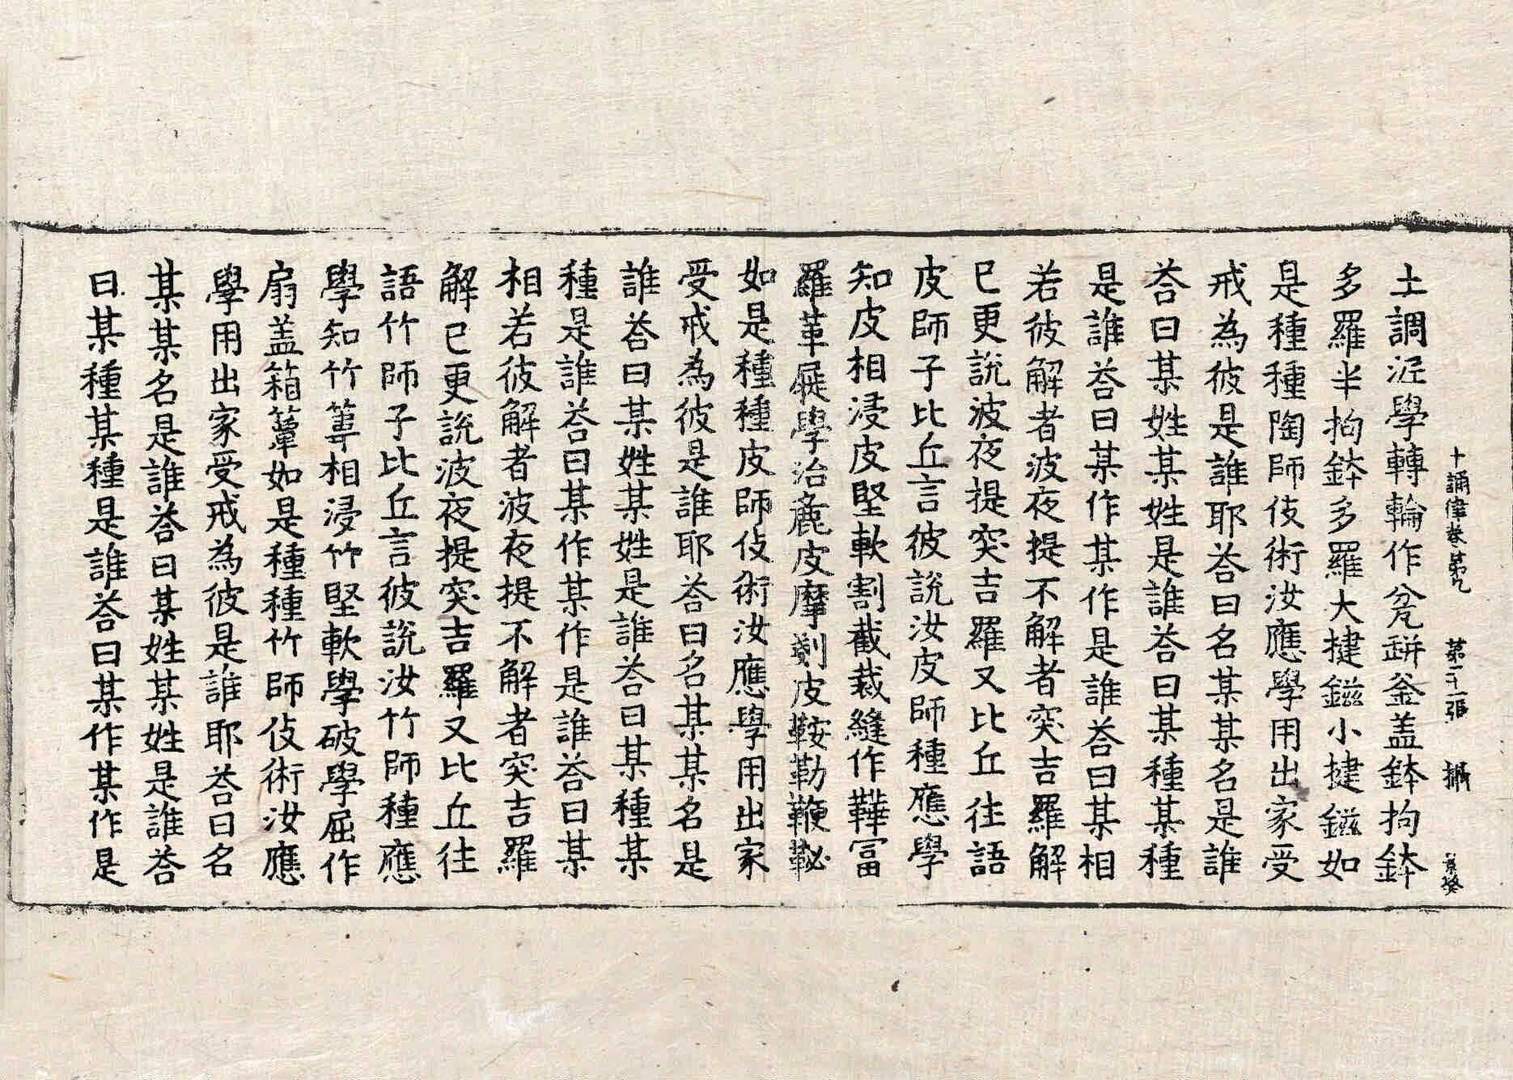 十誦律卷第九 第二十一張 攝
土調泥學轉輪作瓮瓶釜盖鉢拘鉢
多羅半拘鉢多羅大揵鎡小揵鎡如
是種種陶師伎術汝應學用出家受
戒為彼是誰耶荅曰名某某名是誰
荅曰某姓某姓是誰荅曰某種某種
是誰荅曰某作某作是誰荅曰某相
若彼解者波夜提不解者突吉羅解
已更說波夜提突吉羅又比丘往語
皮師子比丘言彼說汝皮師種應學
知皮相浸皮堅軟割截裁縫作鞾富
羅革屣學治麁皮摩剗皮鞍勒鞭鞁
如是種種皮師伎術汝應學用出家
受戒為彼是誰耶荅曰名某某名是
誰荅曰某姓某姓是誰荅曰某種某
種是誰荅曰某作某作是誰荅曰某
相若彼解者波夜提不解者突吉羅
解已更說波夜提突吉羅又比丘往
語竹師子比丘言彼說汝竹師種應
學知竹䓁相浸竹堅軟學破學屈作
扇盖箱簟如是種種竹師伎術汝應
學用出家受戒為彼是誰耶荅曰名
某某名是誰荅曰某姓某姓是誰荅
曰某種某種是誰荅曰某作某作是